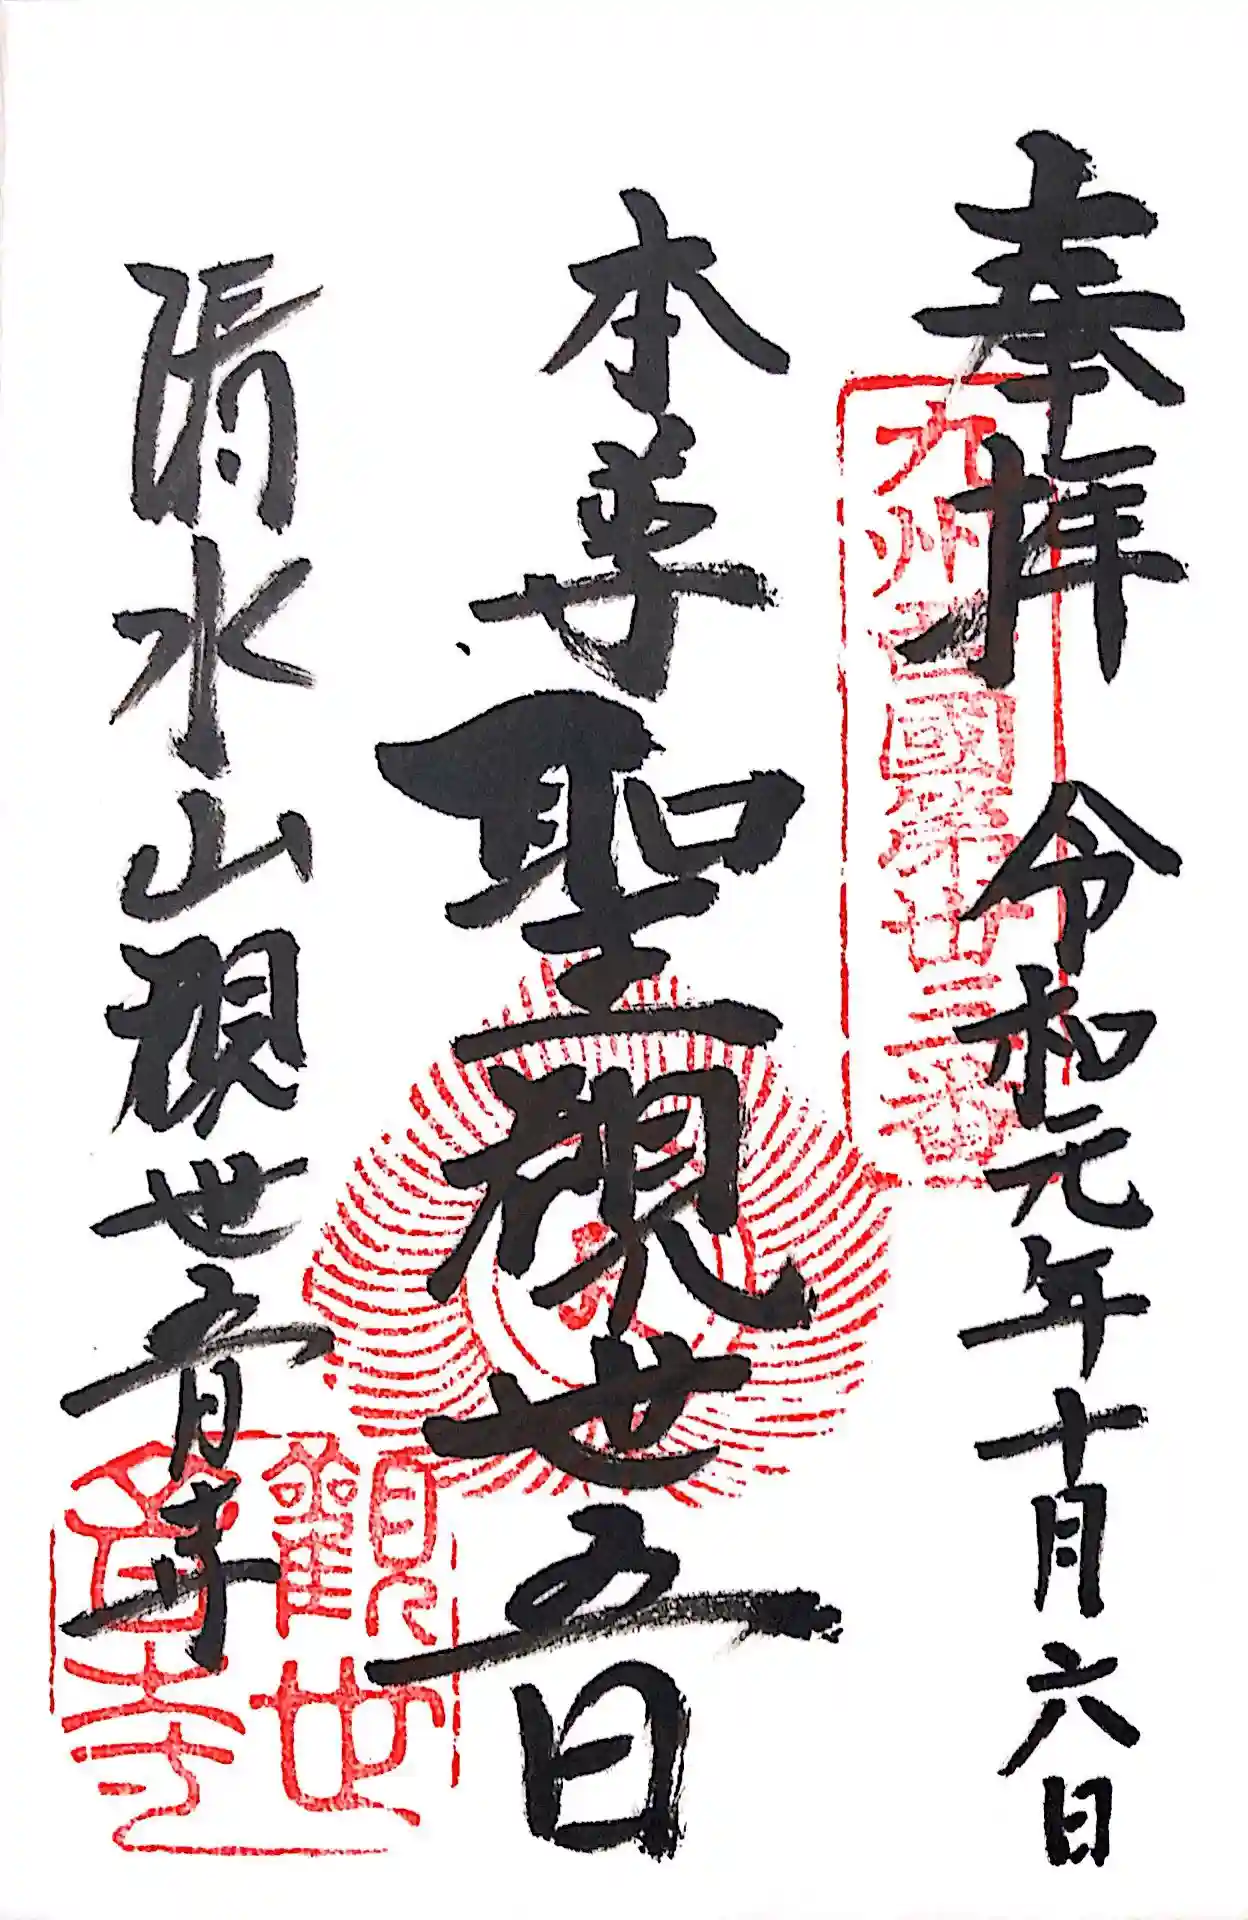 奉拝 令和元年十月六日
九州西國第廿三番
本尊聖観世音
清水山観世音寺
觀世音寺